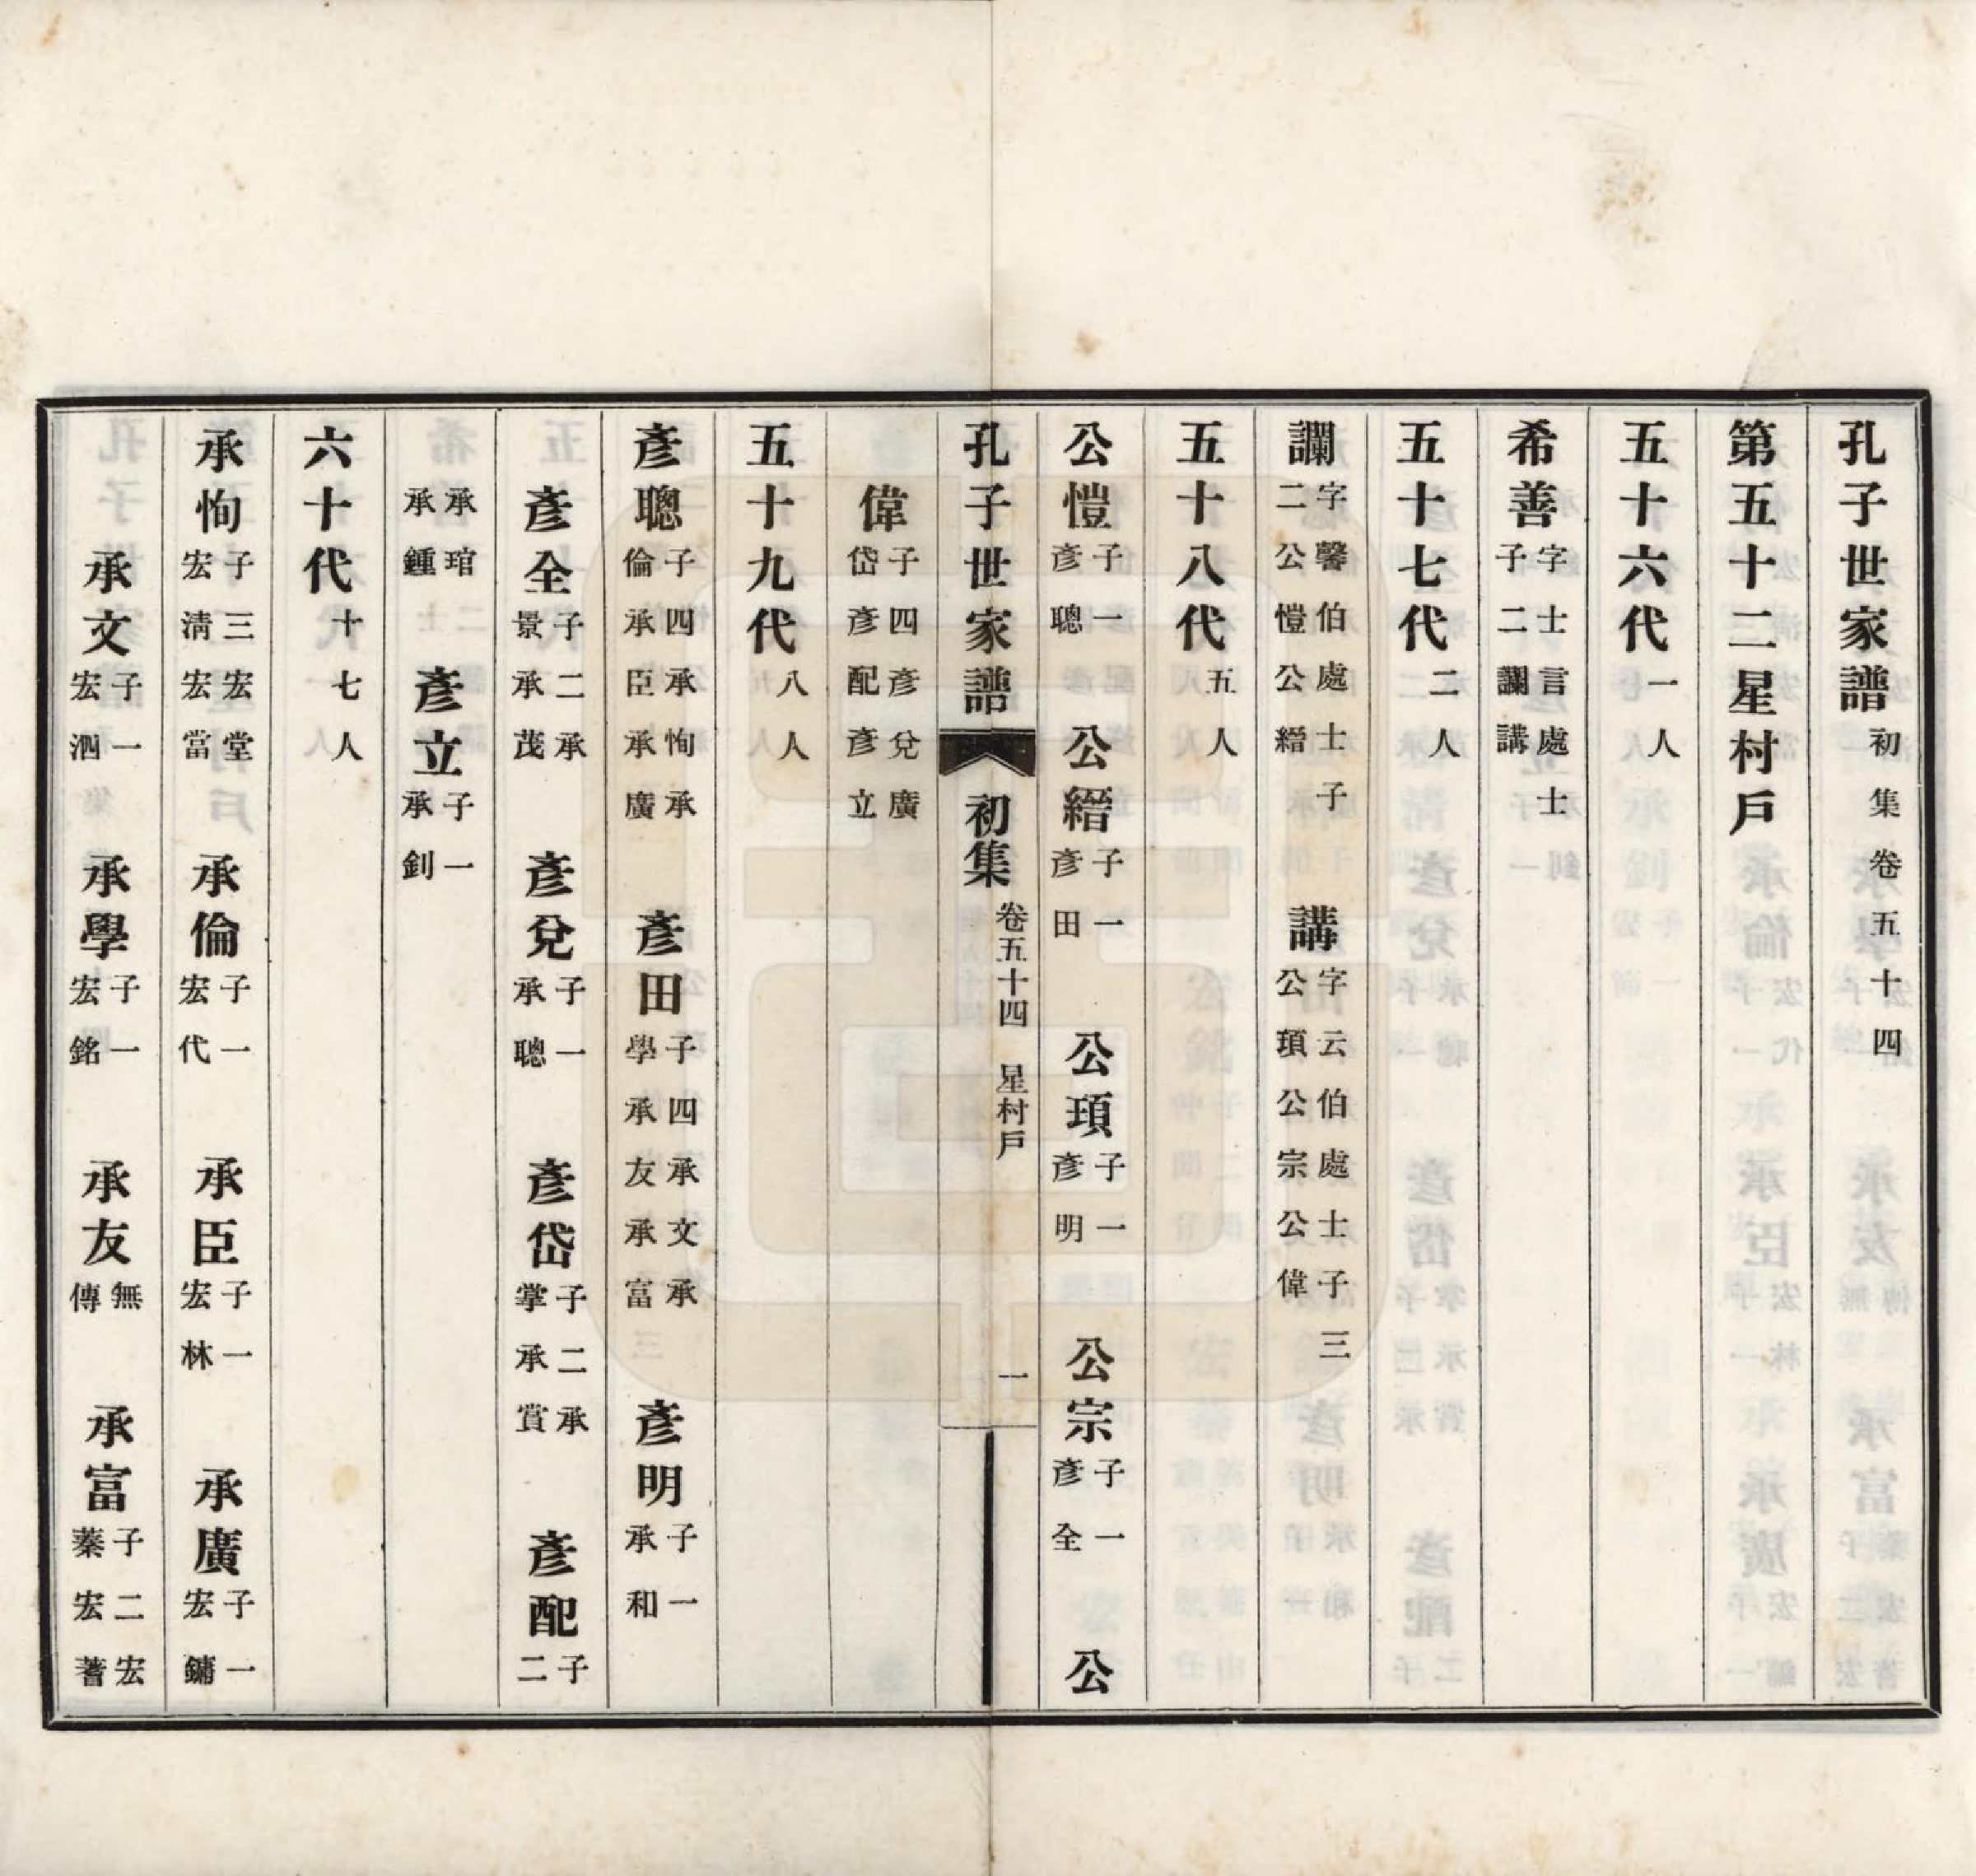 孔子世家譜初集卷五十四
第五十二星村戶
五十六代一人
希善字士言處士子二讕講
五十七代二人
讕字馨伯處士子二公愷公縉　講字云伯處士子三公頊公宗公偉
五十八代五人
公愷子一彥聰　公縉子一彥田　公頊子一彥明　公宗子一彥全　公
孔子世家譜　初集　卷五十四　星村戶　一
偉子四彥兌廣岱彥配彥立
五十九代八人
彥聰子四承恂承倫承臣承廣　彥田子四承文承學承友承富　彥明子一承和
彥全子二承景承茂　彥兌子一承聰　彥岱子二承掌承賞　彥配子二
承琯承鍾　彥立子一承釗
六十代十七人
承恂子三宏堂宏清宏當　承倫子一宏代　承臣子一宏林　承廣子一宏鏞
承文子一宏泗　承學子一宏銘　承友無傳　承富子二宏蓁宏蓍